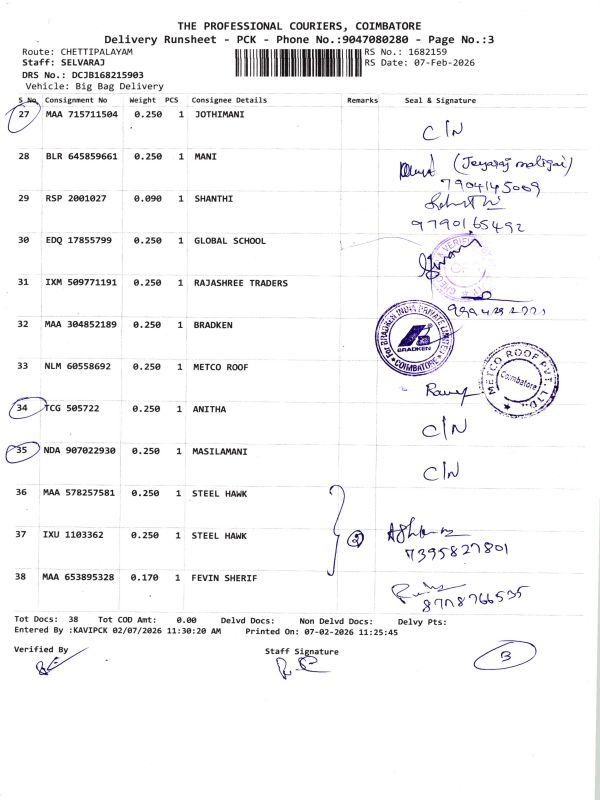 THE PROFESSIONAL COURIERS, COIMBATORE
Delivery Runsheet - PCK - Phone No.:9047080280 - Page No.:3
Route: CHETTIPALAYAM RS No.: 1682159
Staff: SELVARAJ RS Date: 07-Feb-2026
DRS No.: DCJB168215903
Vehicle: Big Bag Delivery
S No. Consignment No Weight PCS Consignee Details Remarks Seal & Signature
27 MAA 715711504 0.250 1 JOTHIMANI C/N
28 BLR 645859661 0.250 1 MANI (Jeyaraj maligai)
7904145009
29 RSP 2001027 0.090 1 SHANTHI
9790165492
30 EDQ 17855799 0.250 1 GLOBAL SCHOOL
31 IXM 509771191 0.250 1 RAJASHREE TRADERS
32 MAA 304852189 0.250 1 BRADKEN For BRADKEN INDIA PRIVATE LIMITED BRADKEN COIMBATORE
33 NLM 60558692 0.250 1 METCO ROOF METCO ROOF PVT. LTD. Coimbatore
34 TCG 505722 0.250 1 ANITHA C/N
35 NDA 907022930 0.250 1 MASILAMANI C/N
36 MAA 578257581 0.250 1 STEEL HAWK
37 IXU 1103362 0.250 1 STEEL HAWK 2
7395827801
38 MAA 653895328 0.170 1 FEVIN SHERIF
8708766535
Tot Docs: 38 Tot COD Amt: 0.00 Delvd Docs: Non Delvd Docs: Delvy Pts:
Entered By :KAVIPCK 02/07/2026 11:30:20 AM Printed On: 07-02-2026 11:25:45
Verified By Staff Signature 3